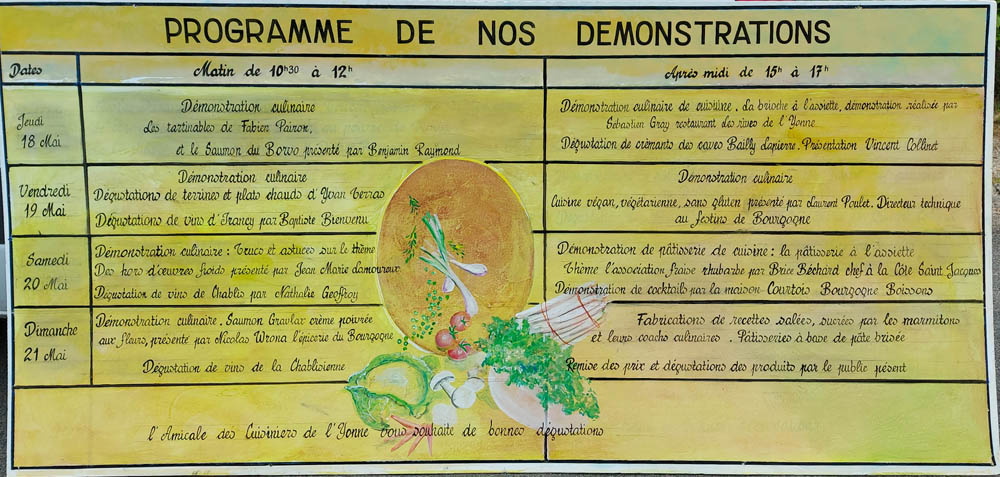 PROGRAMME DE NOS DEMONSTRATIONS
Dates
Matin de 10h30 à 12h
Après midi de 15h à 17h
Jeudi
18 Mai
Démonstration culinaire
Les tartinables de Fabien Pairon,
et le Saumon du Borvo presenté par Benjamin Raymond
Démonstration culinaire de cuisiine. La brioche à l'assiette, démonstration réalisée par
Sébastien Gray restaurant des rives de l'Yonne
Dégustation de crémants des caves Bailly Lapierre. Présentation Vincent Collinet
Vendredi
19 Mai
Démonstration culinaire
Dégustations de terrines et plats chauds d'Yvan Terras
Dégustations de vins d'Irancy par Baptiste Bienvenu
Démonstration culinaire
Cuisine végan, végétarienne, sans gluten présenté par Laurent Poulet. Directeur technique
au festins de Bourgogne
Samedi
20 Mai
Démonstration culinaire : Trucs et astuces sur le thème
Des hors d'œuvres froids présenté par Jean Marie damoureux
Dégustation de vins de Chablis par Nathalie Geoffroy
Démonstration de pâtisserie de cuisine : la pâtisserie à l'assiette
Thème l'association fraise rhubarbe par Brice Béchard chef à la Côte Saint Jacques
Démonstration de cocktails par la maison Courtois Bourgogne Boissons
Dimanche
21 Mai
Démonstration culinaire. Saumon Gravlax crème poivrée
aux fleurs, présenté par Nicolas Wrona l'épicerie du Bourgogne
Dégustation de vins de la Chablisienne
Fabrications de recettes salées, sucrées par les marmitons
et leurs coachs culinaires. Pâtisseries à base de pâte brisée
Remise des prix et dégustations des produits par le public présent
l'Amicale des Cuisiniers de l'Yonne vous souhaite de bonnes dégustations